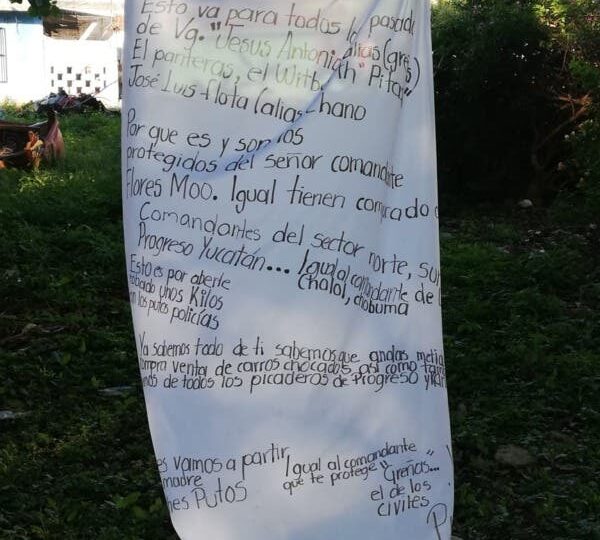 Esto va para todos lo pasada
de Vg. "Jesus Antonio alias (gres)
El panteras, el Witbi "Pitay"
José Luis flota (alias chano
Por que es y son los
protegidos del señor comandante
Flores Moo. Igual tienen comprado
Comandantes del sector norte, sur
Progreso Yucatán... Igual al comandante de
Cholol, chobuma
Esto es por aberle
robado unos Kilos
on los putos policías
Ya sabemos todo de ti sabemos que andas meti
ompra venta de carros chocados, así como
mas de todos los picaderos de Progreso y
es vamos a partir
madre
nes Putos
Igual al comandante
que te protege "Greñas..."
el de los
civiles
P